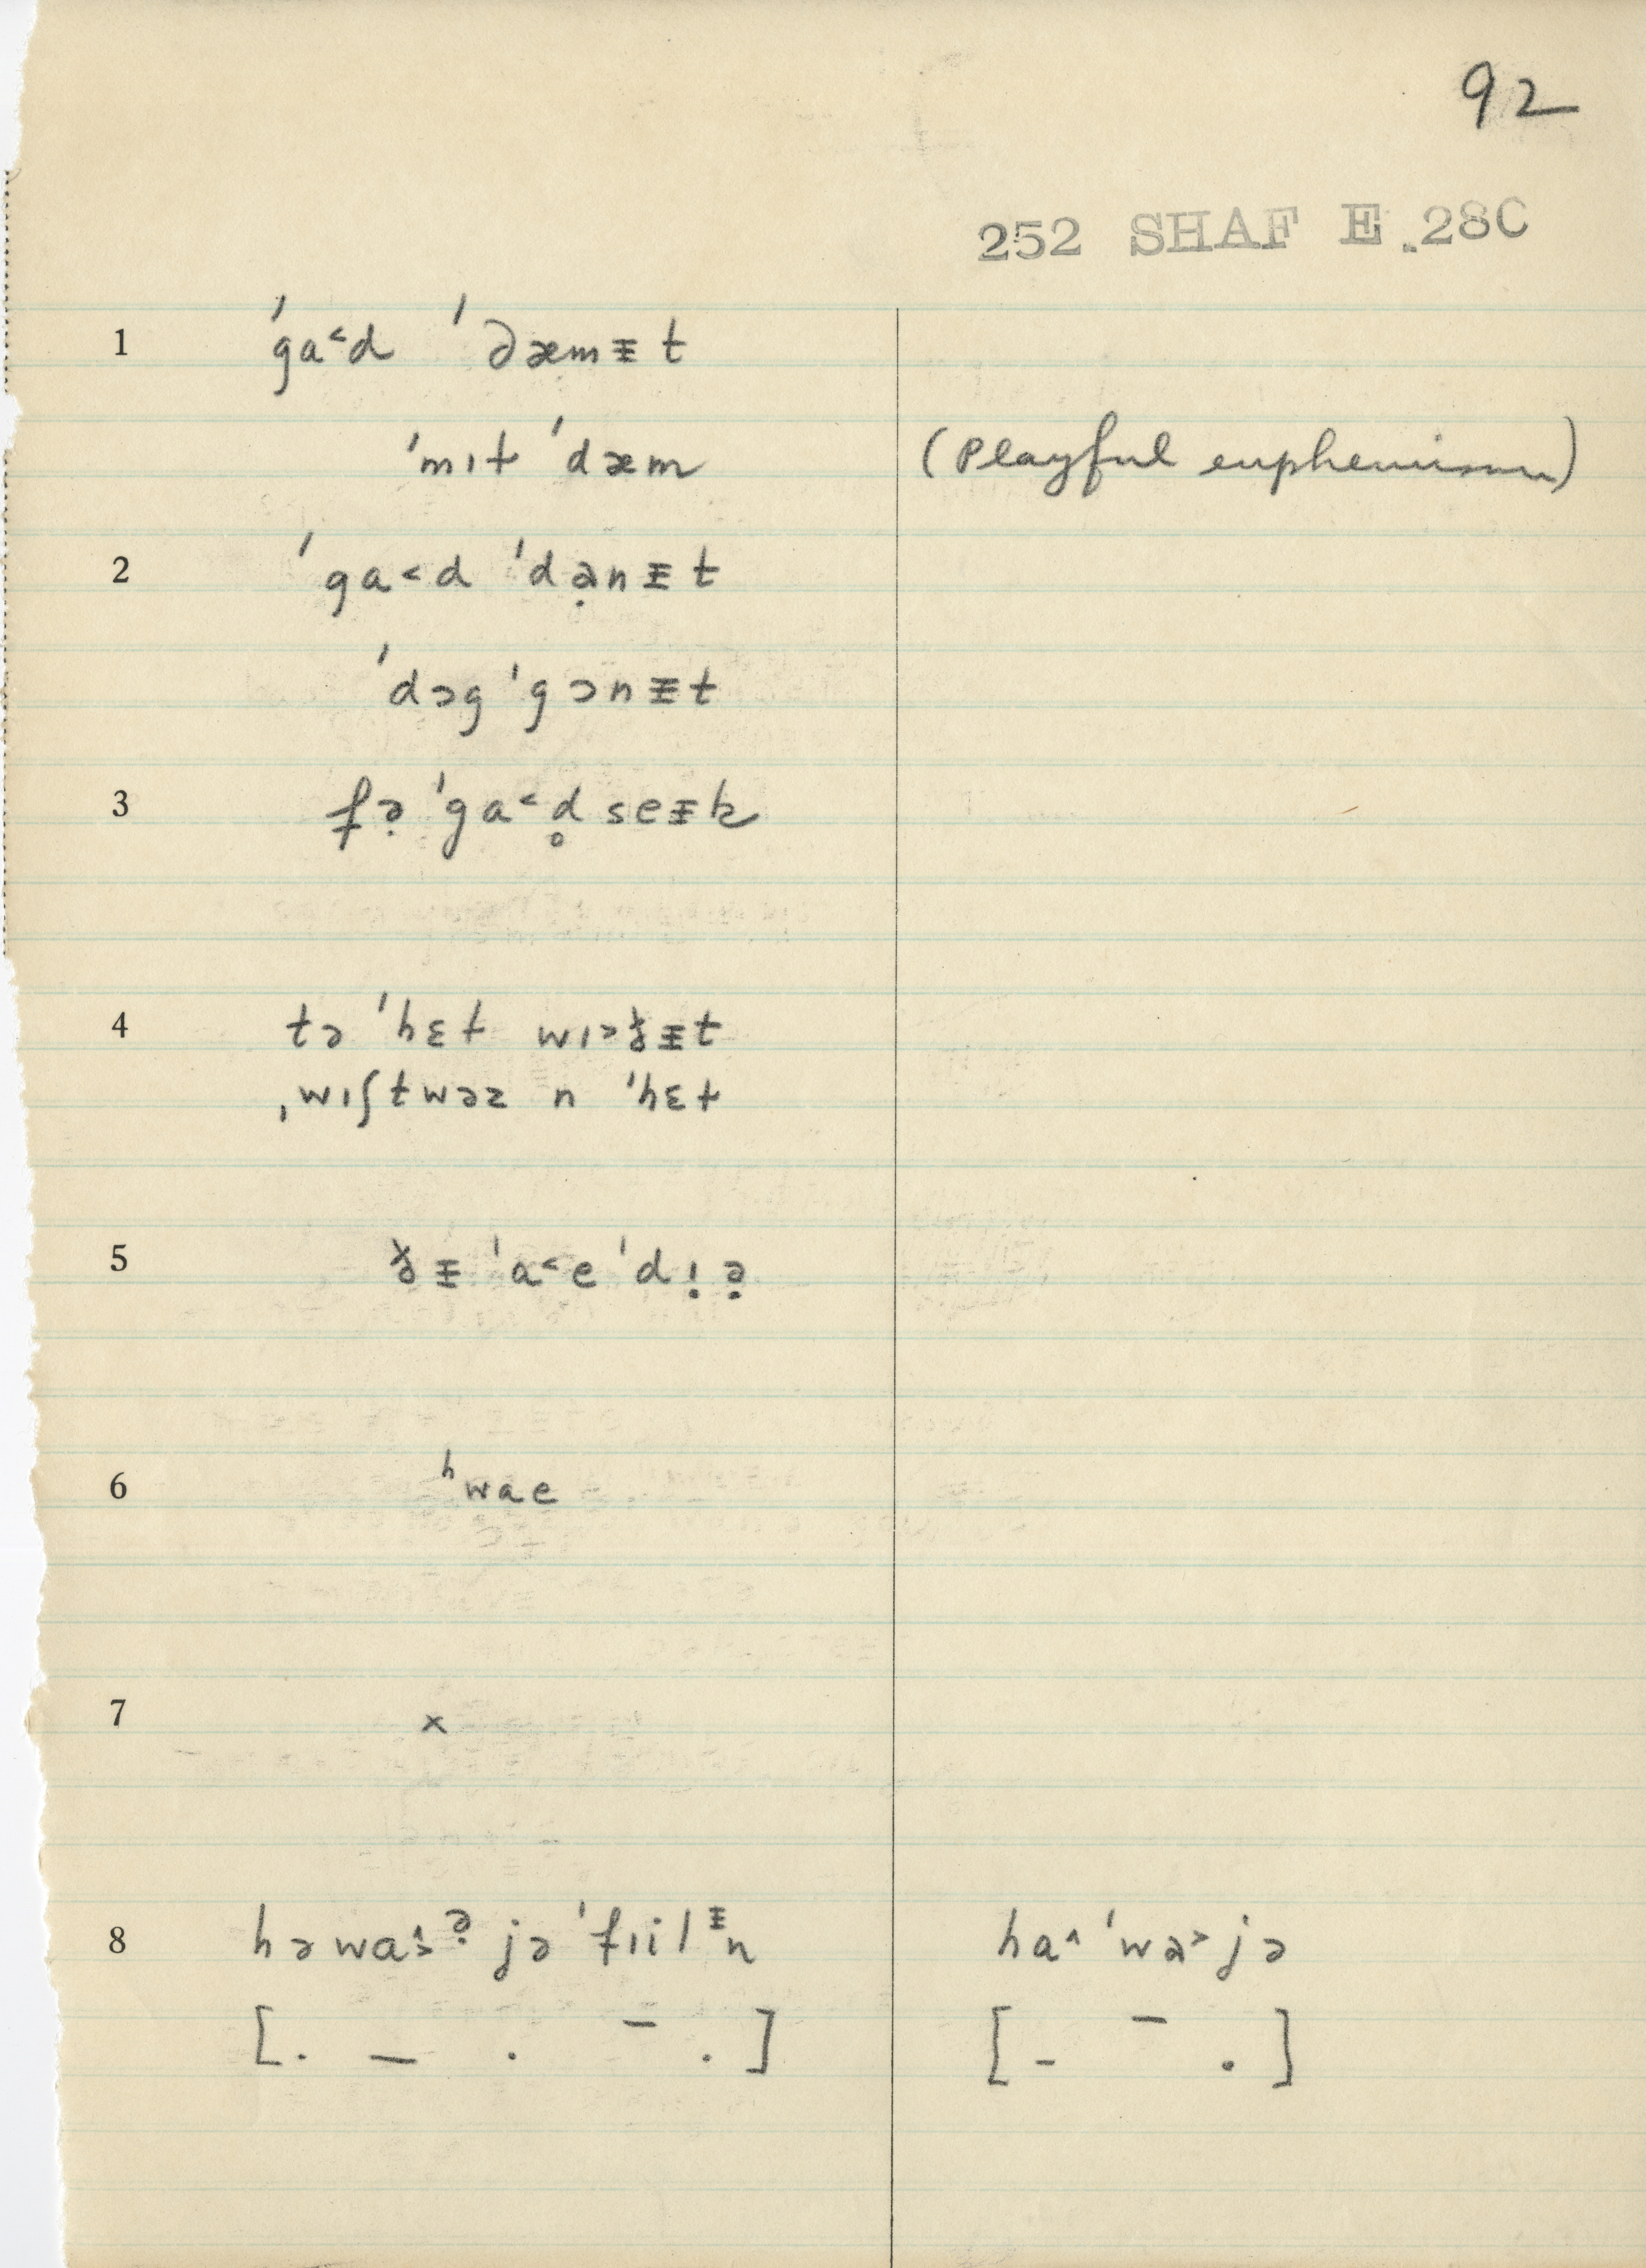 92
252 SHAF E.28C
1 ˈga˂d ˈdæmᵻt
ˈmɪt ˈdæm (Playful euphemism)
2 ˈga˂d ˈdə̣nᵻt
ˈdɔg ˈgɔnᵻt
3 fə̣ ˈga˂d̥ seᵻk
4 tə ˈhɛɫ wɪ˃ðᵻt
ˌwɪʃtwəz n ˈhɛɫ
5 ðᵻ ˈa˂e ˈdɪ̣ə̣
6 ʰwae
7 x
8 həwa˄˃ə̣ jə ˈfɪilᵻn ha˄ ˈwa˃jə
[. _ . ‾ .] [- ‾ .]